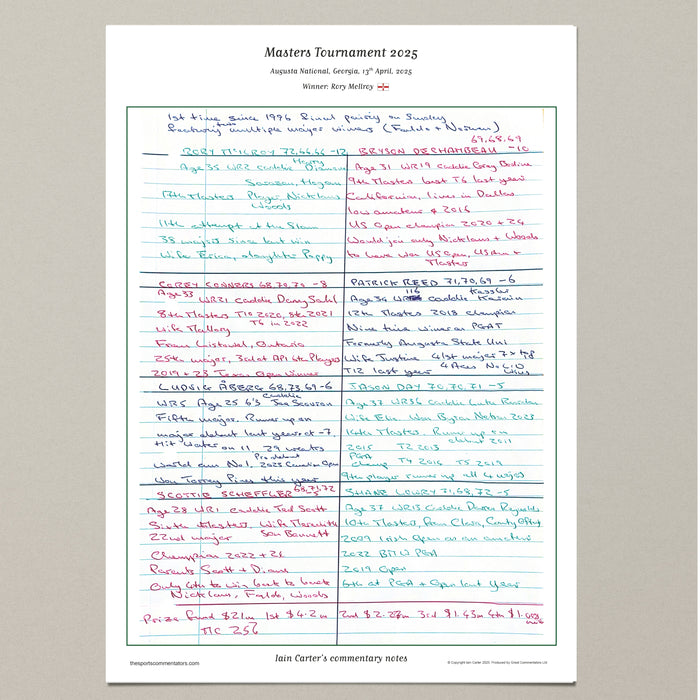 Masters Tournament 2025
Augusta National, Georgia, 13th April, 2025
Winner: Rory McIlroy
1st time since 1996 final pairing on Sunday
featuring two multiple major winners (Faldo + Norman)
RORY McILROY 72,66,66 -12
Age 35 WR2 caddie Harry Diamond
Sarazen, Hogan
17th Masters Player, Nicklaus
Woods
11th attempt at the Slam
38 majors since last win
Wife Erica, daughter Poppy
69,68,69
BRYSON DECHAMBEAU -10
Age 31 WR19 caddie Greg Bodine
9th Masters best T6 last year
Californian, lives in Dallas
low amateur 2016
US Open champion 2020 + 24
Would join only Nicklaus + Woods
to have won US Open, US Am +
Masters
COREY CONNERS 68,70,70 -8
Age 33 WR21 caddie Danny Sahl
8th Masters T10 2020, 8th 2021
Wife Mallory T6 in 2022
From Listowel, Ontario
25th major, 3rd at API 6th Players
2019 + 23 Texas Open winner
PATRICK REED 71,70,69 -6
Age 34 WR 116 caddie Kessler Karain
12th Masters 2018 champion
Nine time winner on PGAT
Formerly Augusta State Uni
Wife Justine 41st major 7 x t10
T12 last year 4 Aces No 6:10
LUDVIG ÅBERG 68,73,69 -6
WR5 Age 25 6'3 caddie Joe Scovron
Fifth major. Runner up on
major debut last year at -7.
Hit water on 11. 29 weeks
World am No 1, Pro debut 2023 Canadian Open
Won Torrey Pines this year
JASON DAY 70,70,71 -5
Age 37 WR36 caddie Luke Reardon
Wife Ellie Won Byron Nelson 2023
14th Masters. Runner up on
debut 2011
2015 T2 2013
PGA champ T4 2016 T5 2019
9th player runner up all 4 majors
SCOTTIE SCHEFFLER 68,71,72 -5
Age 28 WR1 caddie Ted Scott
Sixth Masters, Wife Meredith
22nd major Son Bennett
Champion 2022 + 24
Parents Scott + Diane
Only 4th to win back to back
Nicklaus, Faldo, Woods
SHANE LOWRY 71,68,72 -5
Age 37 WR13 caddie Darren Reynolds
10th Masters, from Clara, County Offaly
2009 Irish Open as an amateur
2022 BMW PGA
2019 Open
6th at PGA + Open last year
Prize fund $21m 1st $4.2m 2nd $2.27m 3rd $1.43m 4th
TIC 256
thesportscommentators.com
Iain Carter's commentary notes
© Copyright Iain Carter 2025. Produced by Great Commentators Ltd